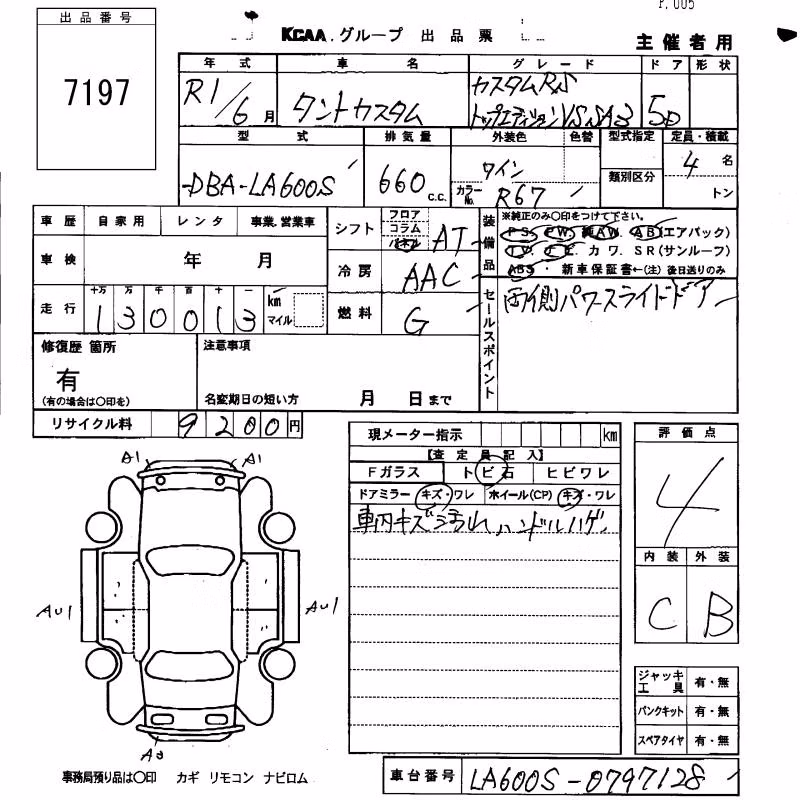 P. 005
出品番号
7197
KCAA.グループ 出品票
主催者用
年式 車名 グレード ドア 形状
R1/6月 タントカスタム カスタムRS
トップエディションVS SA3 5D
型式 排気量 外装色 色替 型式指定 定員・積載
DBA-LA600S 660 C.C. ワイン 4名
カラーNo. R67 類別区分 トン
車歴 自家用 レンタ 事業.営業車
車検 年 月
走行 十万 万 千 百 十 一
130013 km マイル
シフト フロア コラム パネル AT
冷房 AAC
燃料 G
装備品 ※純正のみ○印をつけて下さい。
PS. PW. 純AW. AB(エアバック)
TV. ナビ. カワ. SR(サンルーフ)
ABS・新車保証書←(注)後日送りのみ
セールスポイント 両側パワースライドドア
修復歴 箇所
有
(有の場合は○印を)
注意事項
名変期日の短い方 月 日まで
リサイクル料 9200円
現メーター指示 km
【査定員記入】
Fガラス トビ石 ヒビワレ
ドアミラー キズ・ワレ ホイール(CP) キズ・ワレ
車内キズ汚れ ハンドルハゲ
評価点
4
内装 外装
C B
A1 A1
AU1 AU1
ジャッキ工具 有・無
パンクキット 有・無
スペアタイヤ 有・無
事務局預り品は○印 カギ リモコン ナビロム
車台番号 LA600S-0797128